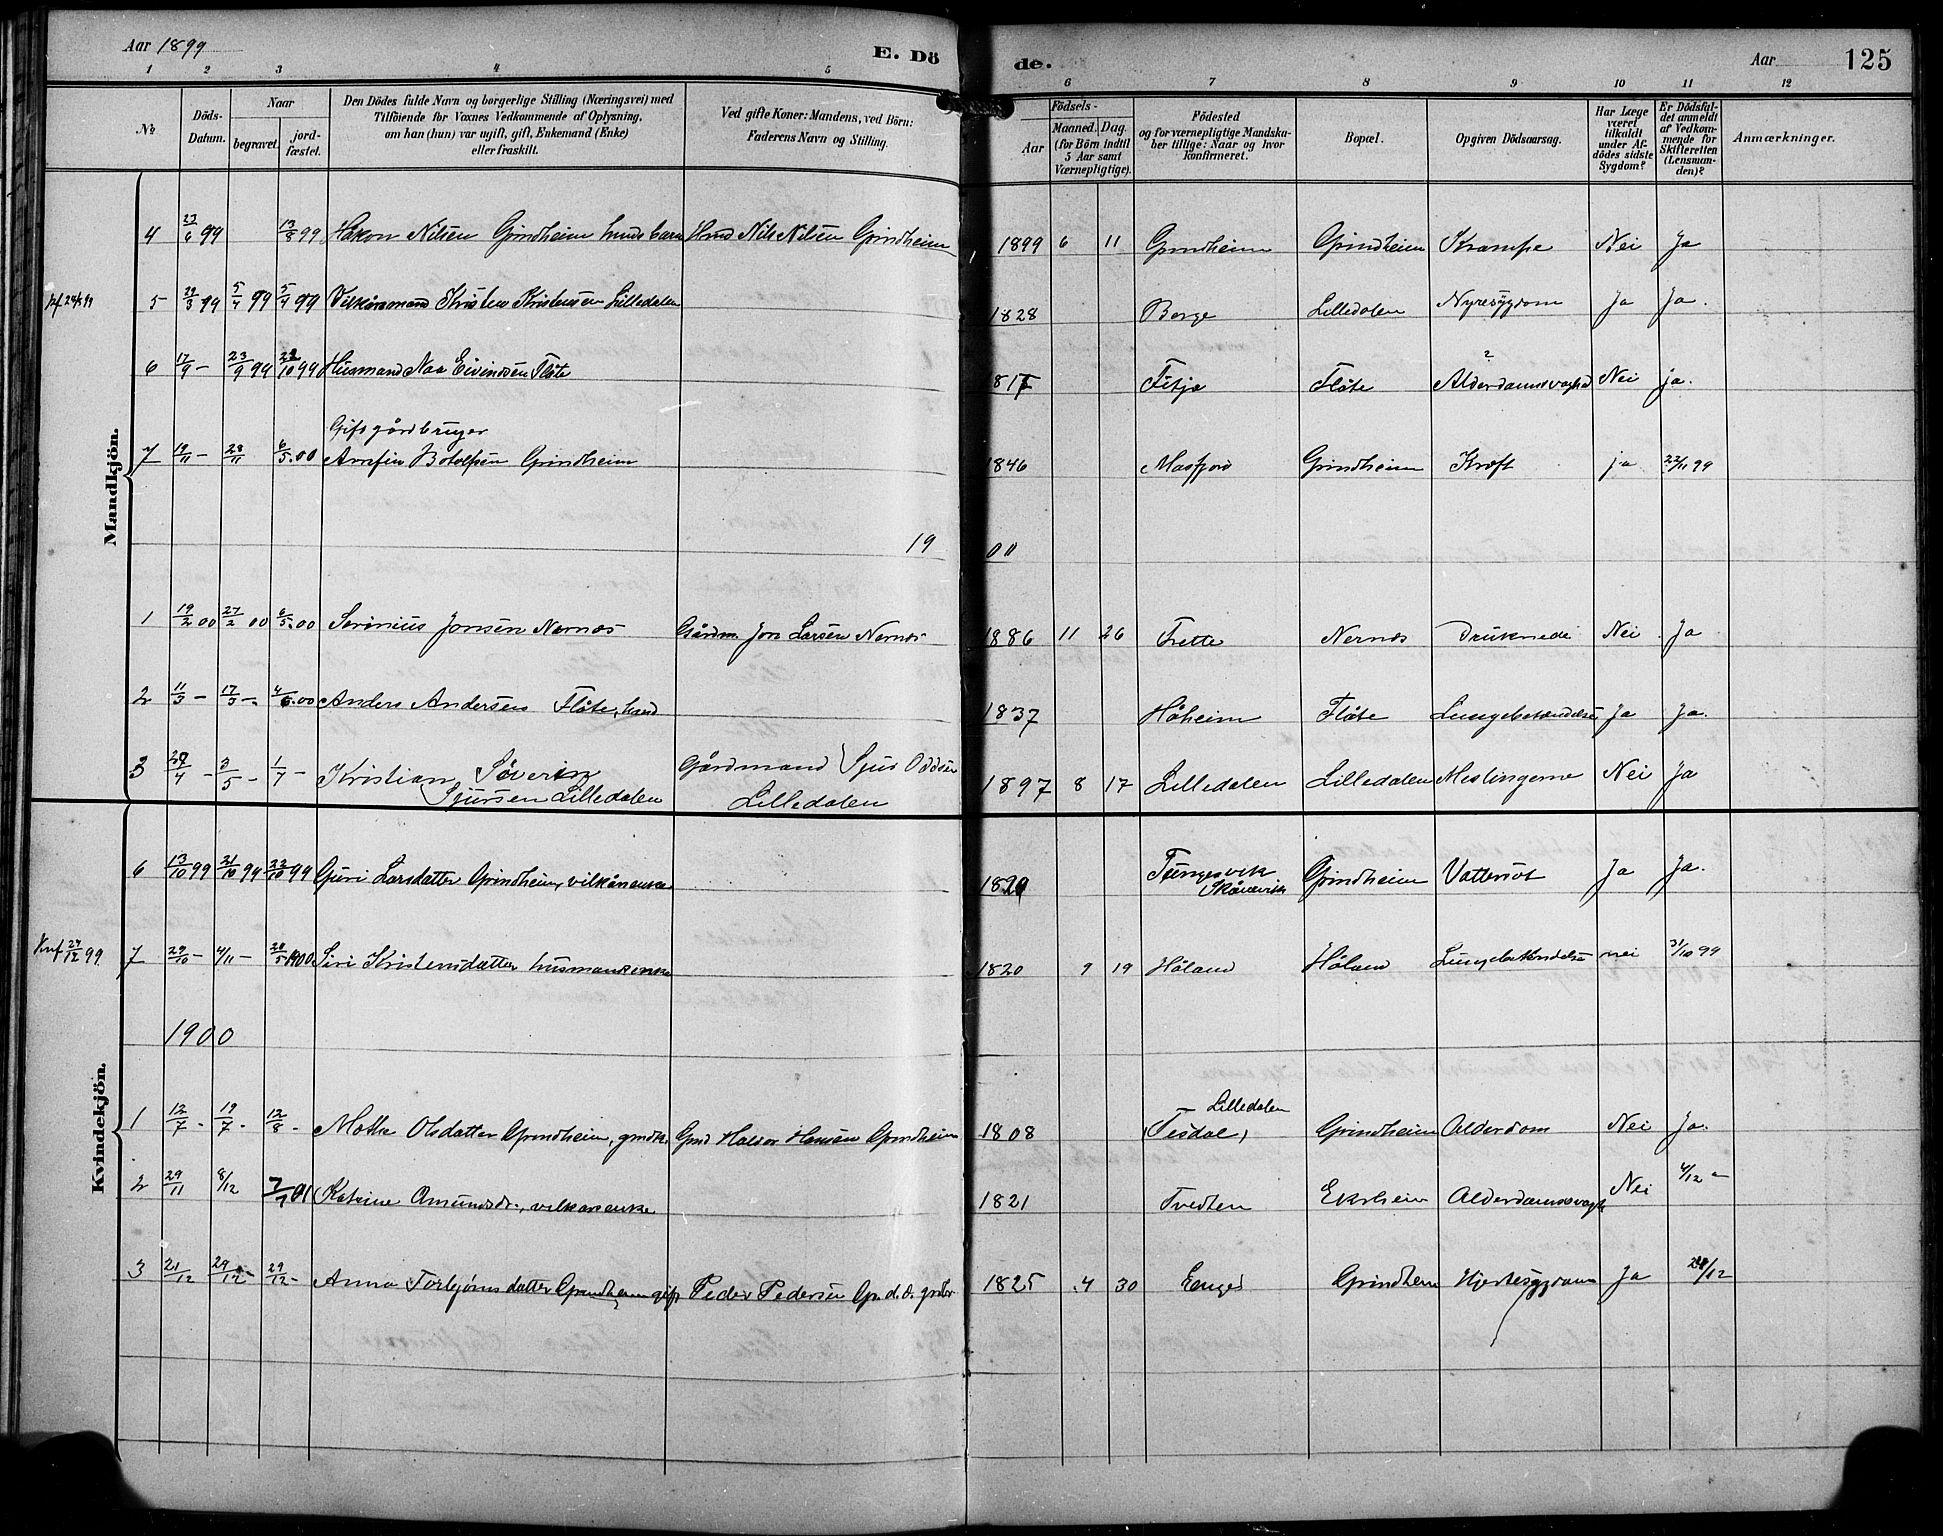 Aar 1899
E. Dö
de.
Aar
125
1 2 3 4 5 6 7 8 9 10 11 12
№
Döds-Datum.
Naar
begravet.
jord-fæstet.
Den Dödes fulde Navn og borgerlige Stilling (Næringsvei) med
Tilföiende for Voxnes Vedkommende af Oplysning,
om han (hun) var ugift, gift, Enkemand (Enke)
eller fraskilt.
Ved gifte Koner: Mandens, ved Börn:
Faderens Navn og Stilling.
Födsels-
Aar
Maaned. Dag.
(for Börn indtil
5 Aar samt
Værnepligtige).
Födested
og for værnepligtige Mandska-
ber tillige: Naar og hvor
konfirmeret.
Bopæl.
Opgiven Dödsaarsag.
Har Læge
været
tilkaldt
under Af-
dödes sidste
Sygdom?
Er Dödsfal-
det anmeldt
af Vedkom-
mende for
Skifteretten
(Lensman-
den)?
Anmærkninger.
Mandkjön.
4 23/6 99 13/8 99 Hakon Nilsen Grindheim husmds barn Husmd Nils Nilsen Grindheim 1899 6 11 Grindheim Grindheim Krampe Nei Ja
5 29/3 99 5/4 99 5/4 99 Vilkårsmand Kristen Kristensen Lilledalen 1828 Borge Lilledalen Nyresygdom Ja Ja.
6 17/9 - 23/9 99 22/10 99 Husmand Naa Eivindsen Flåte 1817 Fitja Flåte Alderdomssvaghed ? Nei ja.
Gift gårdbruger
7 19/11 - 28/11 6/5.00 Arnfin Botolfsen Grindheim 1846 Masfjord Grindheim Kræft ja 22/11 99
19 00
1 19/2 00 27/2 00 6/5.00 Sørinius Jonsen Nernes Gårdm. Jon Larsen Nernes 1886 11 26 Frette Nernes Druknede Nei Ja
2 11/3 - 17/3 - 4/6.00 Anders Andersen Flåte, husmd 1837 Håheim Flåte Lungebetændelse Ja Ja.
3 28/4 - 3/5 - 1/7 - Kristian Søverin Gårdmand Sjur Oddsen 1897 8 17 Lilledalen Lilledalen Meslingerne Nei Ja
Sjursen Lilledalen Lilledalen
Kvindekjön.
6 13/10 99 21/10 99 22/10 99 Guri Larsdatter Grindheim, vilkårsenke 1829 Tungesvik Grindheim Vattersot Ja Ja.
Skånevik
7 29/10 - 4/11 - 20/5 1900 Siri Kristensdatter husmandsenke 1820 9 19 Håland Håland Lungebetændelse nei 31/10 99
1900
Lilledalen
1 12/7 - 19/7 - 12/8 - Mothe Olsdatter Grindheim, grdk. Grd Halvor Hansen Grindheim 1808 (Tesdal) Grindheim Alderdom Nei Ja.
2 29/11 8/12 7/7 01 Katrine Amundsdr., vilkårsenke 1821 Tvedten Ekrheim Alderdomssvagh Nei 4/12 -
3 21/12 29/12 - 29/12 - Anna Torbjørnsdatter Grindheim, gift Peder Pedersen Gr.d.d. grdbr 1825 4 30 Enges Grindheim Hjertesygdom Ja 28/12